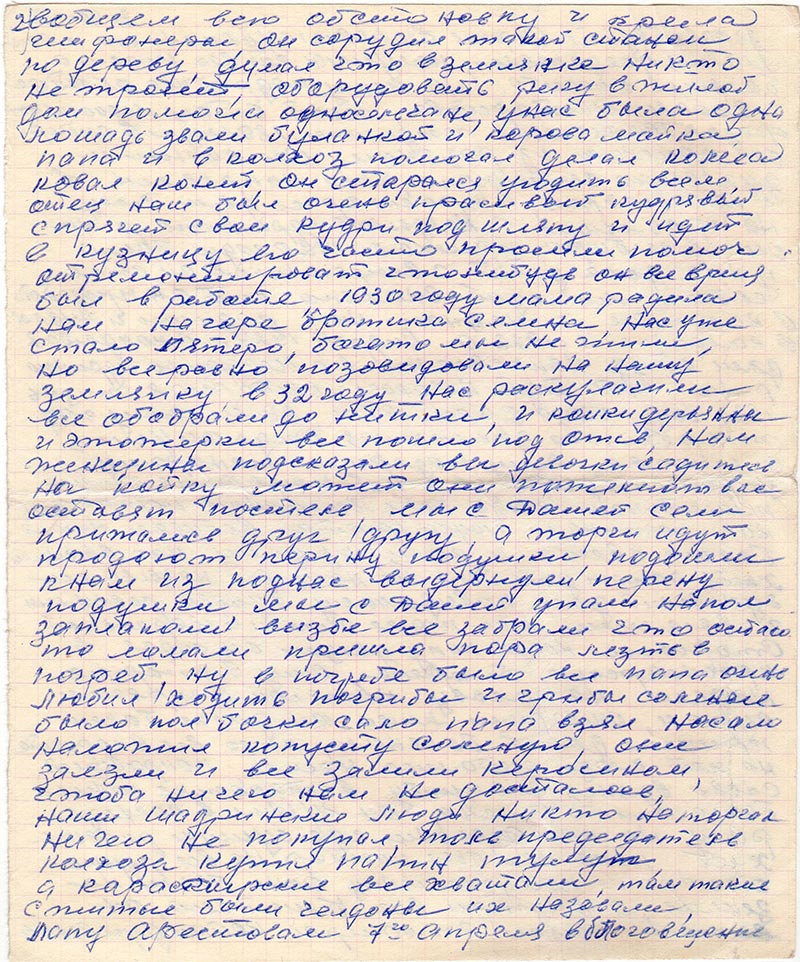 2) вобщем всю обстановку и крыла
шифонеры он сорудил такой станок
по дереву, думал что в землянке никто
не тронет, оборудовать ригу в жилой
дом помогли односельчане, унас была одна
лошадь звали буланкой и корова майка
папа и в колхоз помогал делал колёса
ковал коней, он старался угодить всем,
отец наш был очень красивый кудрявый
спрячет свои кудри под шляпу и идёт
в кузницу его часто просили помоч
отремонтироват чтонибудь он все время
был в работе, 1930 году мама радила
нам на горе братика Семена, нас уже
стало пятеро, богато мы не жили,
но всеровно позовидовали на нашу
землянку, в 32 году нас раскулачили
все обобрали до нитки, и койки деревянны
и этожерки все пошло под отев, Нам
женщины подсказали вы девочки садитесь
на койку может они пожеют вас
оставят постель мы с Дашей сели
прижались друг к другу, а торги идут
продают перину подушки подошли
кнам из поднас выдернули перену
подушки мы с Дашей упали напол
заплакали визбе все забрали что остало
то ломали пришла пора лезть в
погреб ну в погребе было все папа очень
любил ходить погрибы и грибы соленые
было пол бочки сало папа взял насало
наложил копусту соленую, они
залезли и все залили керосином
чтоба ничего нам не досталось,
наши шадринские люди никто на торгах
ничего не покупал, толь председатель
колхоза купил патин тулуп
а карасырские все хватали, там такие
сжитые были челдоны их назавали,
Папу Арестовали 7го апреля в благовещение